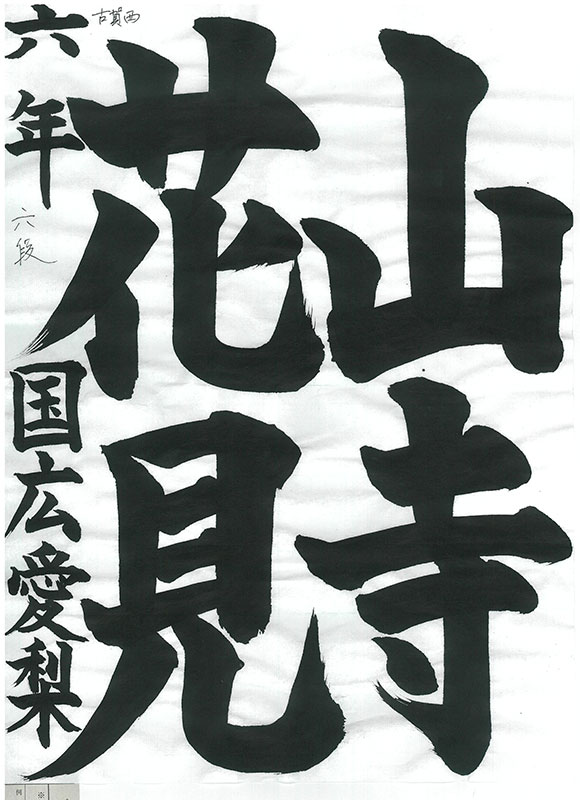 山寺
花見
六年 国広愛梨
古賀西
六段
例
※